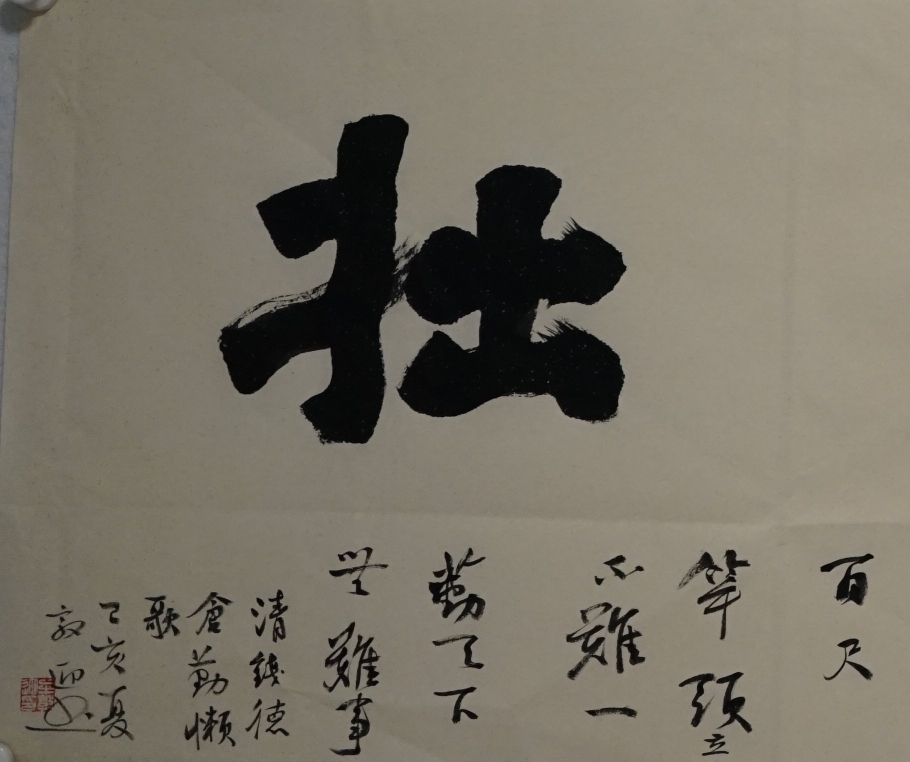 拙
百尺
竿頭立
不難一
勤天下
無難事
清錢德
倉勤懶
歌
己亥夏